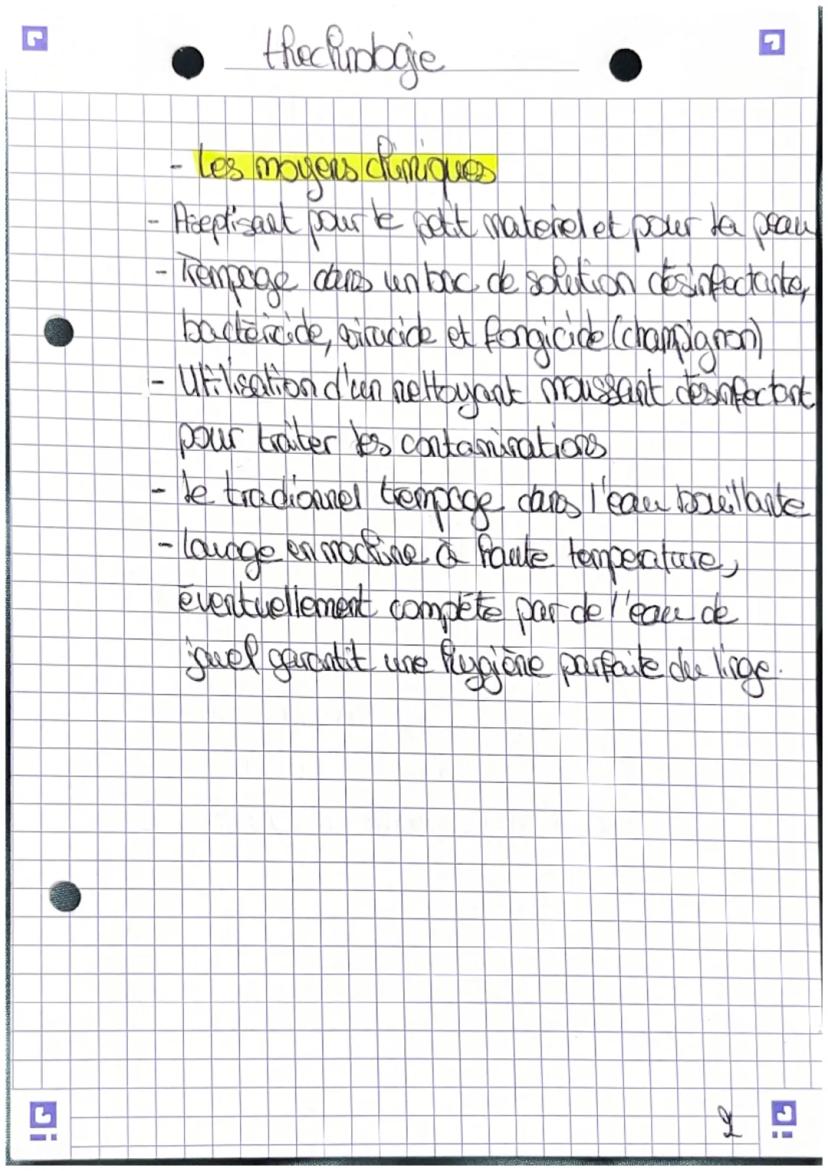 thechnologie
- Les moyens chimiques
- Aseptisant pour le petit materiel et pour la peau
- Trempage dans un bac de solution désinfectante,
bactéricide, viracide et fongicide (champignon)
- Utilisation d'un nettoyant moussant désinfectant
pour traiter les contaminations
- le tradionnel trempage dans l'eau bouillante
- lavage en machine à haute temperature,
éventuellement compéte par de l'eau de
javel garantit une hygiène parfaite du linge.
2